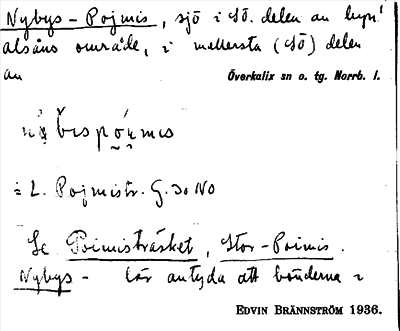 Nybys-Pojmis, sjö i sö. delen av byn!
alsåns område, i mellersta (sö) delen
av Överkalix sn o. tg. Norrb. l.
= L. Pojmistr. G. 30 NO
Se Poimisträsket, Stor-Poimis.
Nybys- lär antyda att bönderna i
EDVIN BRÄNNSTRÖM 1936.